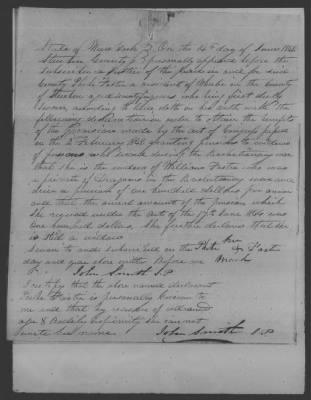 State of New York } On the 4th day of June 1848
Steuben County } personally appeared before the
subscriber a Justice of the peace in and for said
County a resident of in the County
of Steuben who being first duly
sworn according to law doth on his oath make the
following declaration in order to obtain the benefits
of the provisions made by the act of Congress passed
on the 2d February 1848 granting pensions to widows
of persons who served during the Revolutionary war
that she is the widow of William who was
a private of Dragoons in the Revolutionary war and
drew a pension of one hundred dollars per annum
and that the annual amount of the pension which
she received under the Act of the 17th June 1844 was
one hundred dollars. She further declares that she
is still a widow
Sworn to and subscribed on the her
day and year above written Before me mark
John Smith J.P.
I certify that the above named declarant
is personally known to
me and that by reason of
age & Bodily infirmity she cannot
write her name. John Smith J.P.